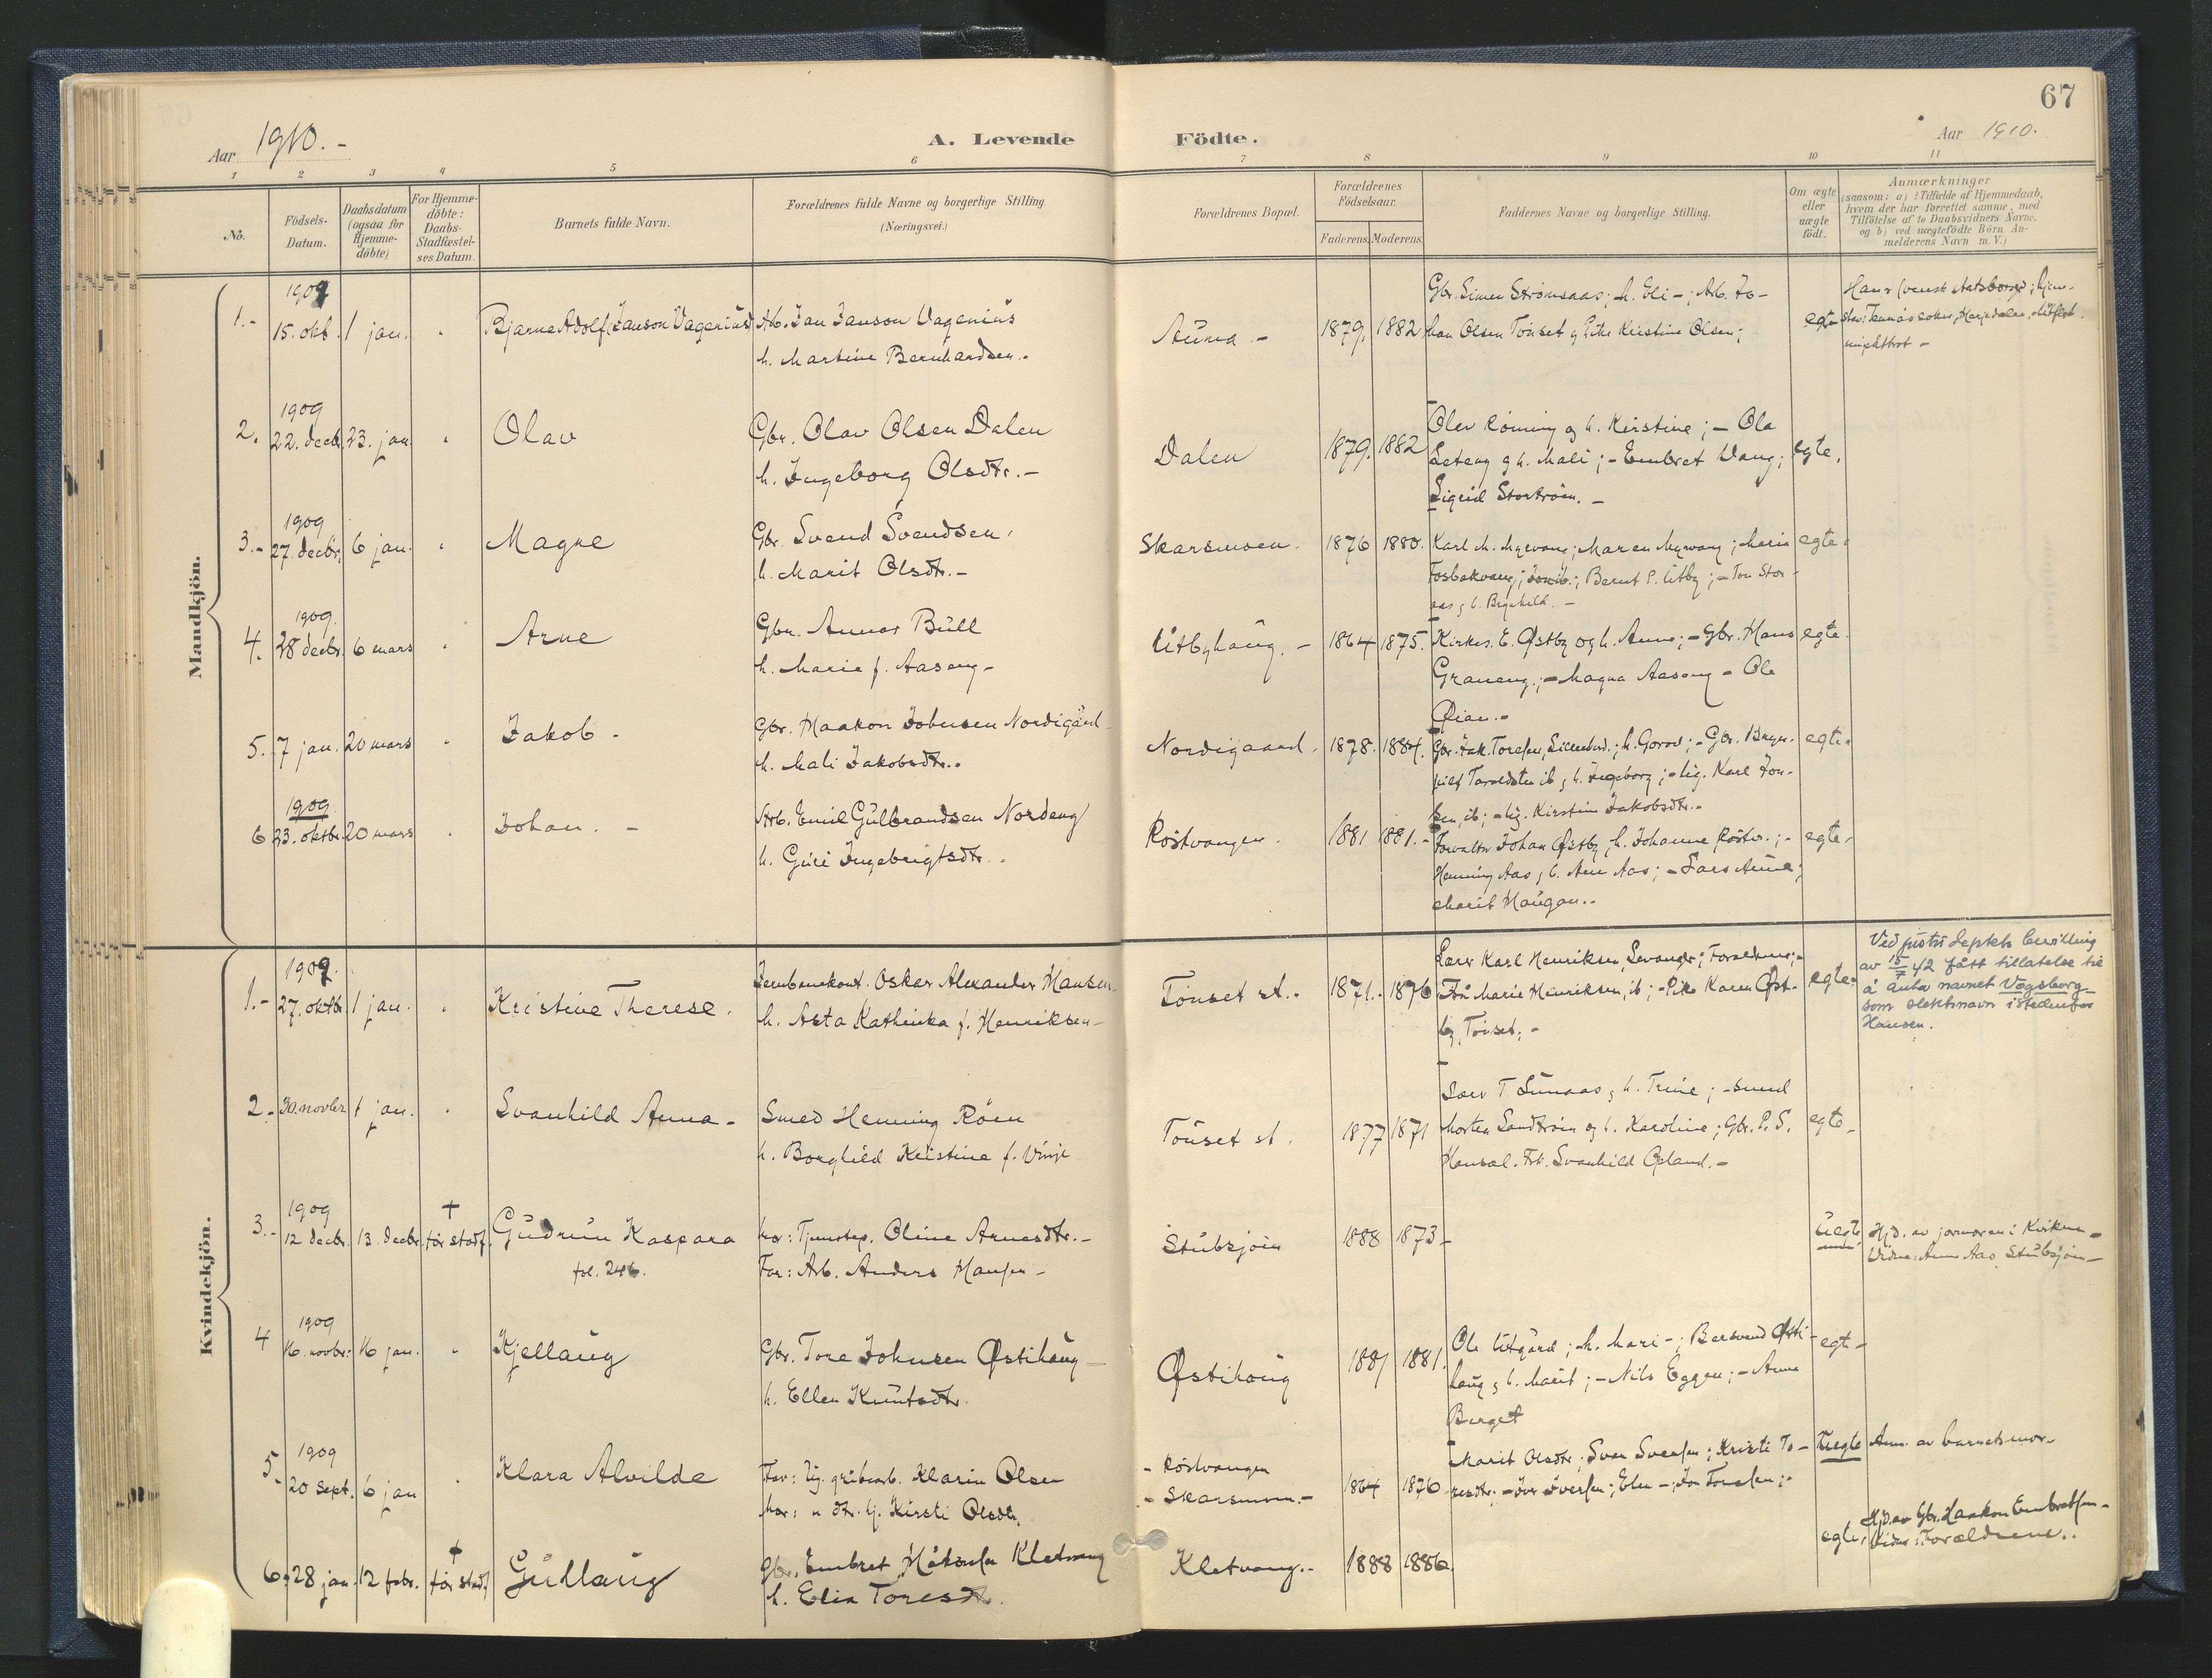 67
Aar 1910. -
A. Levende
Födte.
Aar 1910.
1 2 3 4 5 6 7 8 9 10 11
No.
Födsels-
Datum.
Daabsdatum
(ogsaa for
Hjemme-
döbte)
For Hjemme-
döbte:
Daabs-
Stadfæstel-
ses Datum.
Barnets fulde Navn.
Forældrenes fulde Navne og borgerlige Stilling.
(Næringsvei.)
Forældrenes Bopæl.
Forældrenes
Födselsaar.
Faderens. Moderens.
Faddernes Navne og borgerlige Stilling.
Om ægte
eller
uægte
födt.
Anmærkninger
(saasom: a) i Tilfælde af Hjemmedaab,
hvem der har forrettet samme, med
Tilföielse af to Daabsvidners Navne.
og b) ved uægtefödte Börn An-
melderens Navn m. V.)
Mandkjön.
1909
1.- 15. okt. 1 jan. Bjarne Adolf Janson Vagenius Arb. Jan Janson Vagenius
h. Martine Bernhardsen.-
Auma.- 1879. 1882
Gbr. Simen Strömsaas; h. Eli -; Arb. Jo-
han Olsen Tönset og Pike Kirstine Olsen;
egte
1909
2. 22. decb. 23. jan. Olav Gbr. Olav Olsen Dalen
h. Ingeborg Olsdtr.-
Dalen 1879. 1882
Olev Röining og h. Kirstine; - Ola
og h. Mali; - Embret Vang;
Sigrid Storströen. -
egte.
1909
3.- 27. decbr. 6 jan. Magne Gbr. Svend Svendsen.
h. Marit Olsdtr.-
Skarsmoen. 1876 1880.
Karl M. Myrvang; Maren Myrvang; Marie
Fosbakvang; Bernt P. Utby; - Jon Stor-
aas
egte.
1909.
4. 28 decbr. 6 mars Arne Gbr. Annar Bull
h. Marie f. Aaseng-
Utbyhaug.- 1864 1875.
Kirkes. E. Østby og h. Anne; - Gbr. Hans
Graneng.; - Magna Aaseng - Ole
Øian.-
egte.
5. 7 jan. 20 mars Jakob. Gbr. Haakon Johnsen Nordigård
h. Mali Jakobsdtr..
Nordigaard. 1878. 1884.
h. Ingeborg; - Karl Jon-
sen, ib; - Kirstine Jakobsdtr.-
egte.
1909
6 23. oktbr. 20 mars Johan. - Arb. Emil Gulbrandsen Nordeng
h. Guri Ingebrigtsdtr..
Röstvangen. 1881 1881.-
Forvalter Johan Østby, h. Johanne, Röstv.; -
Henning Aas, h. Ane Aas; - Lars Aune;
Marit Haugan..
egte.
Kvindekjön.
1909.
1.- 27. oktbr. 1 jan. Kristine Therese. Jernbanekont. Oskar Alexander Hansen
h. Asta Kathinka f. Henriksen-
Tönset st.. 1871. 1876
Karl Henriksen, Levanger; Forældrene; -
Frk Marie Henriksen, ib; - Pike Karen Øst-
by, Tönset; -
egte.
Ved justis deptets bevilling
av 15/7 42 fått tillatelse til
å anta navnet Vågsborg
som slektsnavn istedenfor
Hansen.
2.- 30. novbr. 1 jan. Svanhild Anna- Smed Henning Röen
h. Borghild Kristine f. Vinje
Tönset st. 1877 1871
T. Tunaas, h. Trine; - Smed
Morten Sandströin og h. Karoline; Gbr. P. S.
Frk. Svanhild Opland.-
egte-
1909
3.- 12 decbr. 13. decbr. †
för stadf. Gudrun Kaspara
fol. 246.
Mor: Tjenstep. Oline Arnesdtr.-
Far: Arb. Anders Hansen-
Stubsjöin 1888 1873-
Uegte
Hj.d. av jormoren i Kvikne-
Vidne: Anne Aas, Stubsjöin-
1909
4 16. novbr. 16 jan. Kjellaug Gbr. Tore Johnsen Østihaug-
h. Ellen Knutsdtr.
Østihoug 1881 1881.
Ole Utgård; h. Mari -; Bersvend Østi-
haug, h. Marit; - Nils Eggen; - Anne
Berget
egte-
1909
5. 20 sept. 6 jan Klara Alvilde Far: Ug. grubearb. Klarin Olsen
Mor: Kirsti Olsdtr.
- Röstvangen
- Skarsmoen.- 1864 1876
Marit Olsdtr; Sven Svensen; Kristi To-
resdtr; - Iver Iversen; Elen -; Jon Toresen; -
Uegte Anm. av barnets mor.
6. 28 jan. 12 febr. †
för stadf Gullaug Gbr. Embret Håkonsen Kletvang
h. Elia Toresdtr.
Kletvang.- 1888 1886.
egte.
Hj.d. av Gbr. Haakon Embretsen-
Vidner: Forældrene..